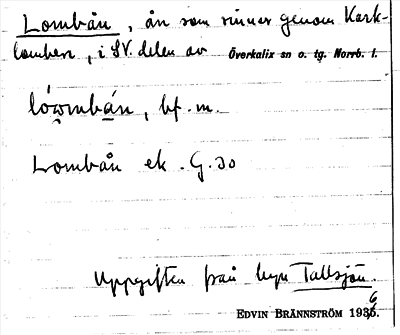 Lombån, ån som rinner genom Kark-
lomben, i SV. delen av Överkalix sn o. tg. Norrb. l.
lówmbán, bf. m.
Lombån ek. G. 30
Uppgiften från byn Tallsjön.
EDVIN BRÄNNSTRÖM 1936.